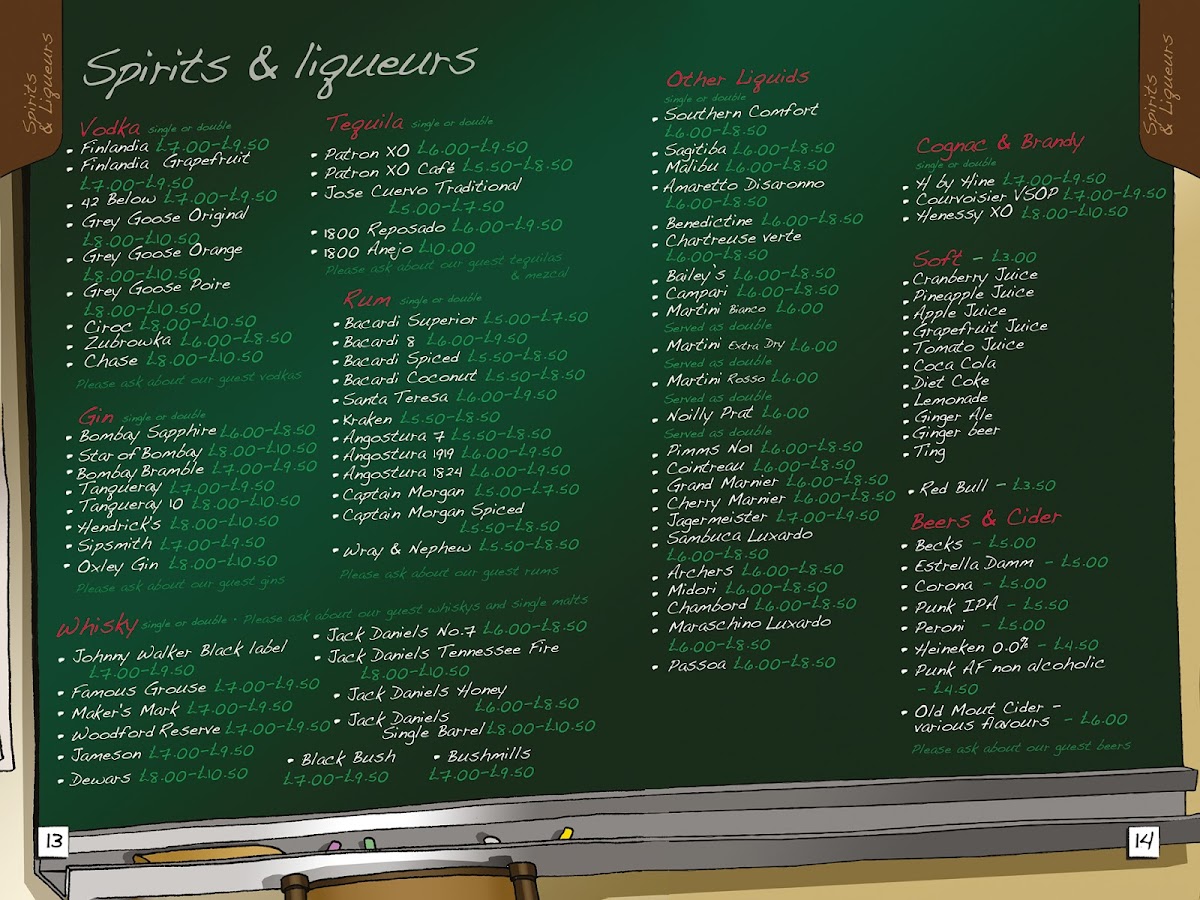 Spirits
& Liqueurs
Spirits & liqueurs
Vodka single or double
• Finlandia £7.00-£9.50
• Finlandia Grapefruit
£7.00-£9.50
• 42 Below £7.00-£9.50
• Grey Goose Original
£8.00-£10.50
• Grey Goose Orange
£8.00-£10.50
• Grey Goose Poire
£8.00-£10.50
• Ciroc £8.00-£10.50
• Zubrowka £6.00-£8.50
• Chase £8.00-£10.50
Please ask about our guest vodkas
Gin single or double
• Bombay Sapphire £6.00-£8.50
• Star of Bombay £8.00-£10.50
• Bombay Bramble £7.00-£9.50
• Tanqueray £7.00-£9.50
• Tanqueray 10 £8.00-£10.50
• Hendrick's £8.00-£10.50
• Sipsmith £7.00-£9.50
• Oxley Gin £8.00-£10.50
Please ask about our guest gins
Tequila single or double
• Patron XO £6.00-£9.50
• Patron XO Café £5.50-£8.50
• Jose Cuervo Traditional
£5.00-£7.50
• 1800 Reposado £6.00-£9.50
• 1800 Anejo £10.00
Please ask about our guest tequilas
& mezcal
Rum single or double
• Bacardi Superior £5.00-£7.50
• Bacardi 8 £6.00-£9.50
• Bacardi Spiced £5.50-£8.50
• Bacardi Coconut £5.50-£8.50
• Santa Teresa £6.00-£9.50
• Kraken £5.50-£8.50
• Angostura 7 £5.50-£8.50
• Angostura 1919 £6.00-£9.50
• Angostura 1824 £6.00-£9.50
• Captain Morgan £5.00-£7.50
• Captain Morgan Spiced
£5.50-£8.50
• Wray & Nephew £5.50-£8.50
Please ask about our guest rums
Whisky single or double • Please ask about our guest whiskys and single malts
• Johnny Walker Black label
£7.00-£9.50
• Famous Grouse £7.00-£9.50
• Maker's Mark £7.00-£9.50
• Woodford Reserve £7.00-£9.50
• Jameson £7.00-£9.50
• Dewars £8.00-£10.50
• Jack Daniels No.7 £6.00-£8.50
• Jack Daniels Tennessee Fire
£8.00-£10.50
• Jack Daniels Honey
£6.00-£8.50
• Jack Daniels
Single Barrel £8.00-£10.50
• Black Bush
£7.00-£9.50
• Bushmills
£7.00-£9.50
13
Other Liquids
single or double
• Southern Comfort
£6.00-£8.50
• Sagitiba £6.00-£8.50
• Malibu £6.00-£8.50
• Amaretto Disaronno
£6.00-£8.50
• Benedictine £6.00-£8.50
• Chartreuse verte
£6.00-£8.50
• Bailey's £6.00-£8.50
• Campari £6.00-£8.50
• Martini Bianco £6.00
Served as double
• Martini Extra Dry £6.00
Served as double
• Martini Rosso £6.00
Served as double
• Noilly Prat £6.00
Served as double
• Pimms No1 £6.00-£8.50
• Cointreau £6.00-£8.50
• Grand Marnier £6.00-£8.50
• Cherry Marnier £6.00-£8.50
• Jagermeister £7.00-£9.50
• Sambuca Luxardo
£6.00-£8.50
• Archers £6.00-£8.50
• Midori £6.00-£8.50
• Chambord £6.00-£8.50
• Maraschino Luxardo
£6.00-£8.50
• Passoa £6.00-£8.50
Spirits
& Liqueurs
Cognac & Brandy
single or double
• H by Hine £7.00-£9.50
• Courvoisier VSOP £7.00-£9.50
• Henessy XO £8.00-£10.50
Soft - £3.00
• Cranberry Juice
• Pineapple Juice
• Apple Juice
• Grapefruit Juice
• Tomato Juice
• Coca Cola
• Diet Coke
• Lemonade
• Ginger Ale
• Ginger beer
• Ting
• Red Bull - £3.50
Beers & Cider
• Becks - £5.00
• Estrella Damm - £5.00
• Corona - £5.00
• Punk IPA - £5.50
• Peroni - £5.00
• Heineken 0.0% - £4.50
• Punk AF non alcoholic
- £4.50
• Old Mout Cider -
various flavours - £6.00
Please ask about our guest beers
14